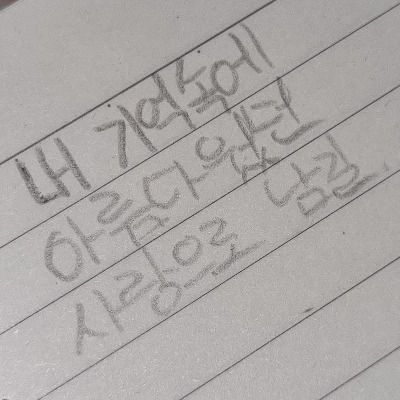 내 기억속에
아름다웠던
사랑으로 남길